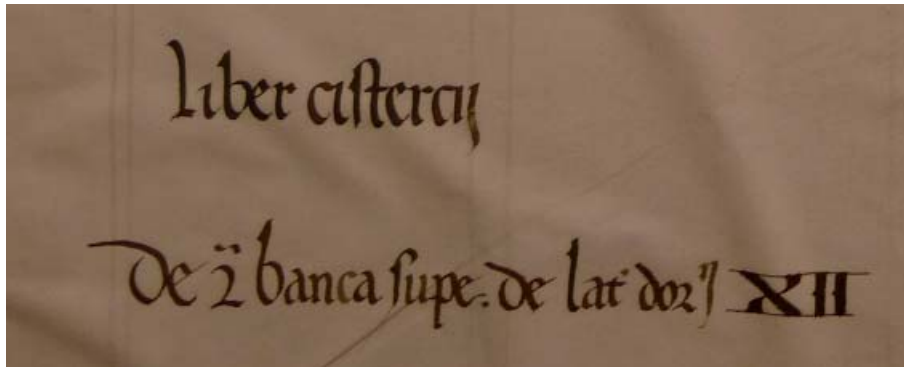 liber cistercij
De 2ª banca supe. de lat' dorʼj XII